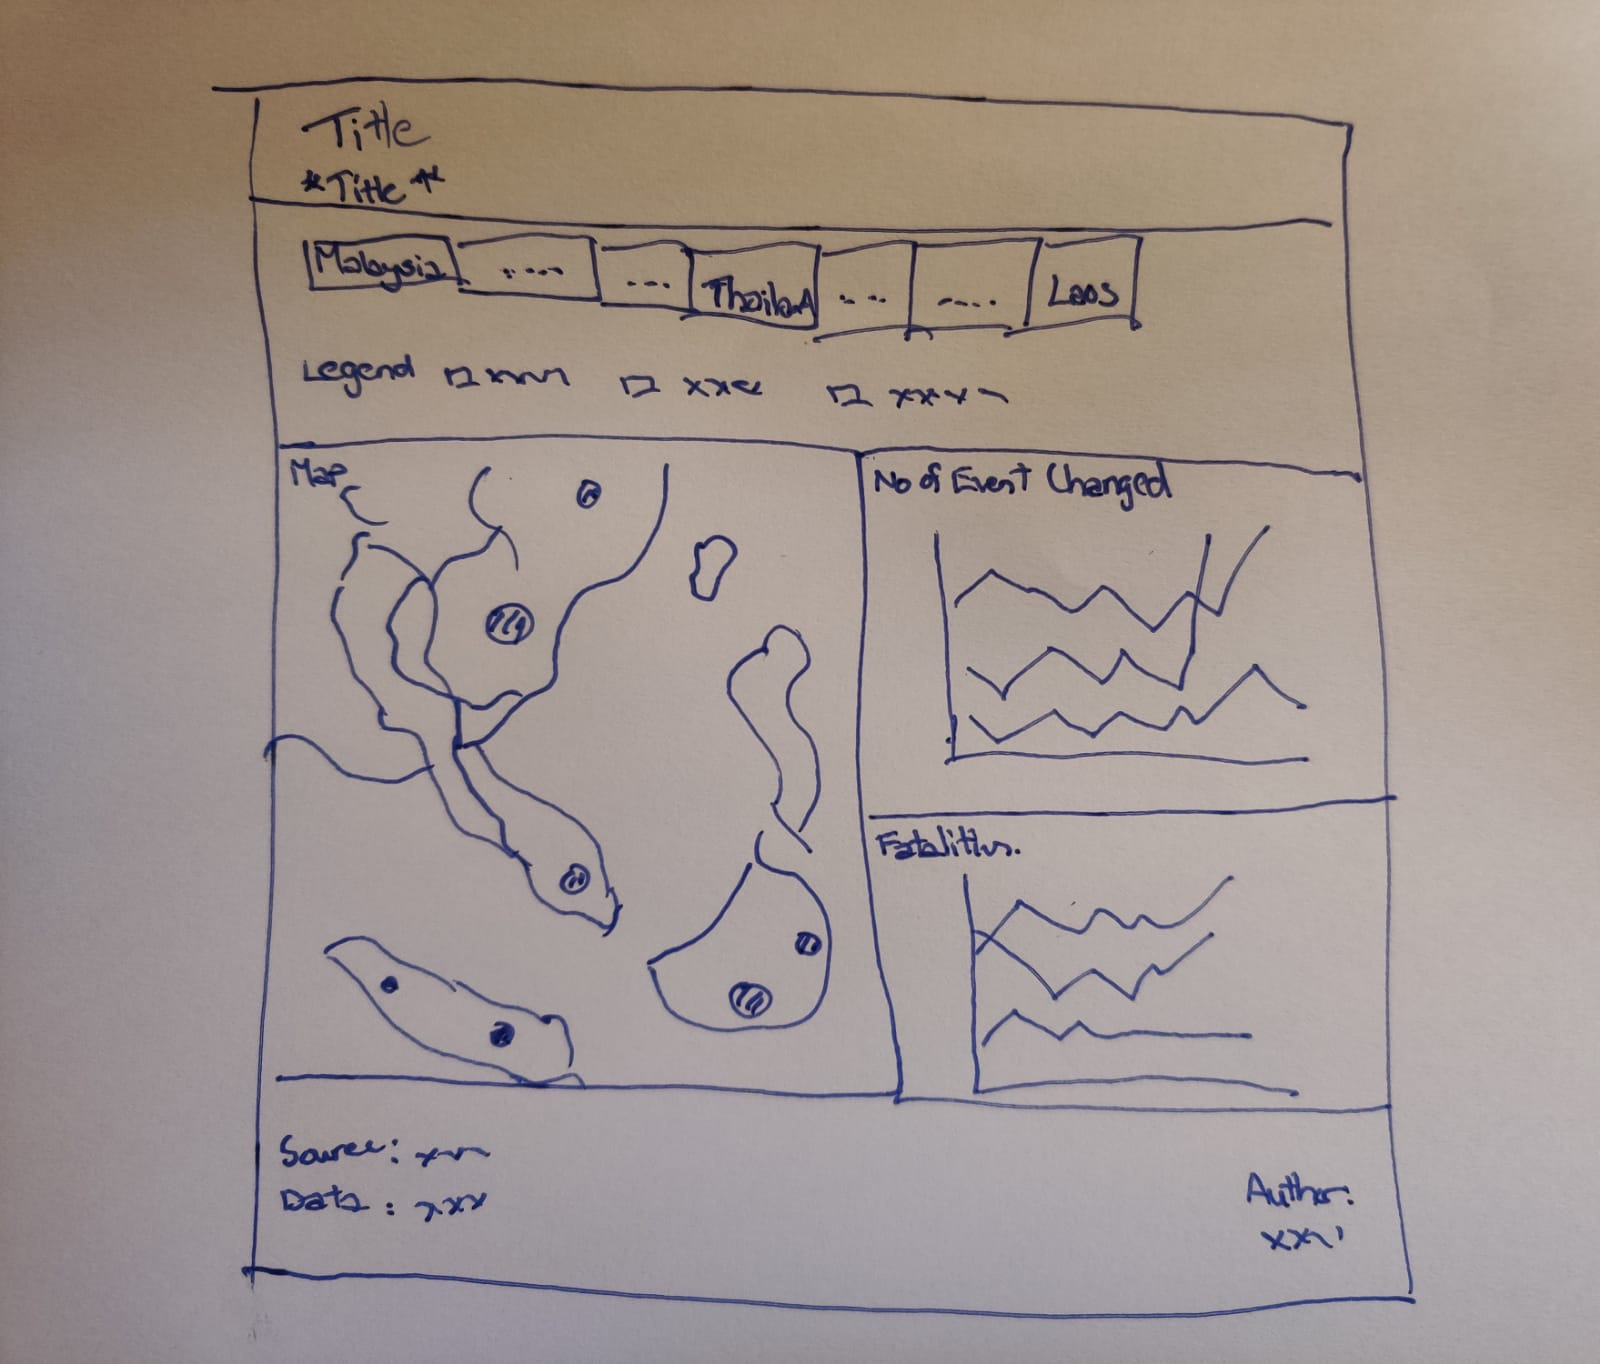 Title
*Title*
Malaysia ..... ... Thailand ... .... Laos
Legend
Map
No of Event Changed
Fatalities.
Source: xxx
Data: xxx
Author:
xxx